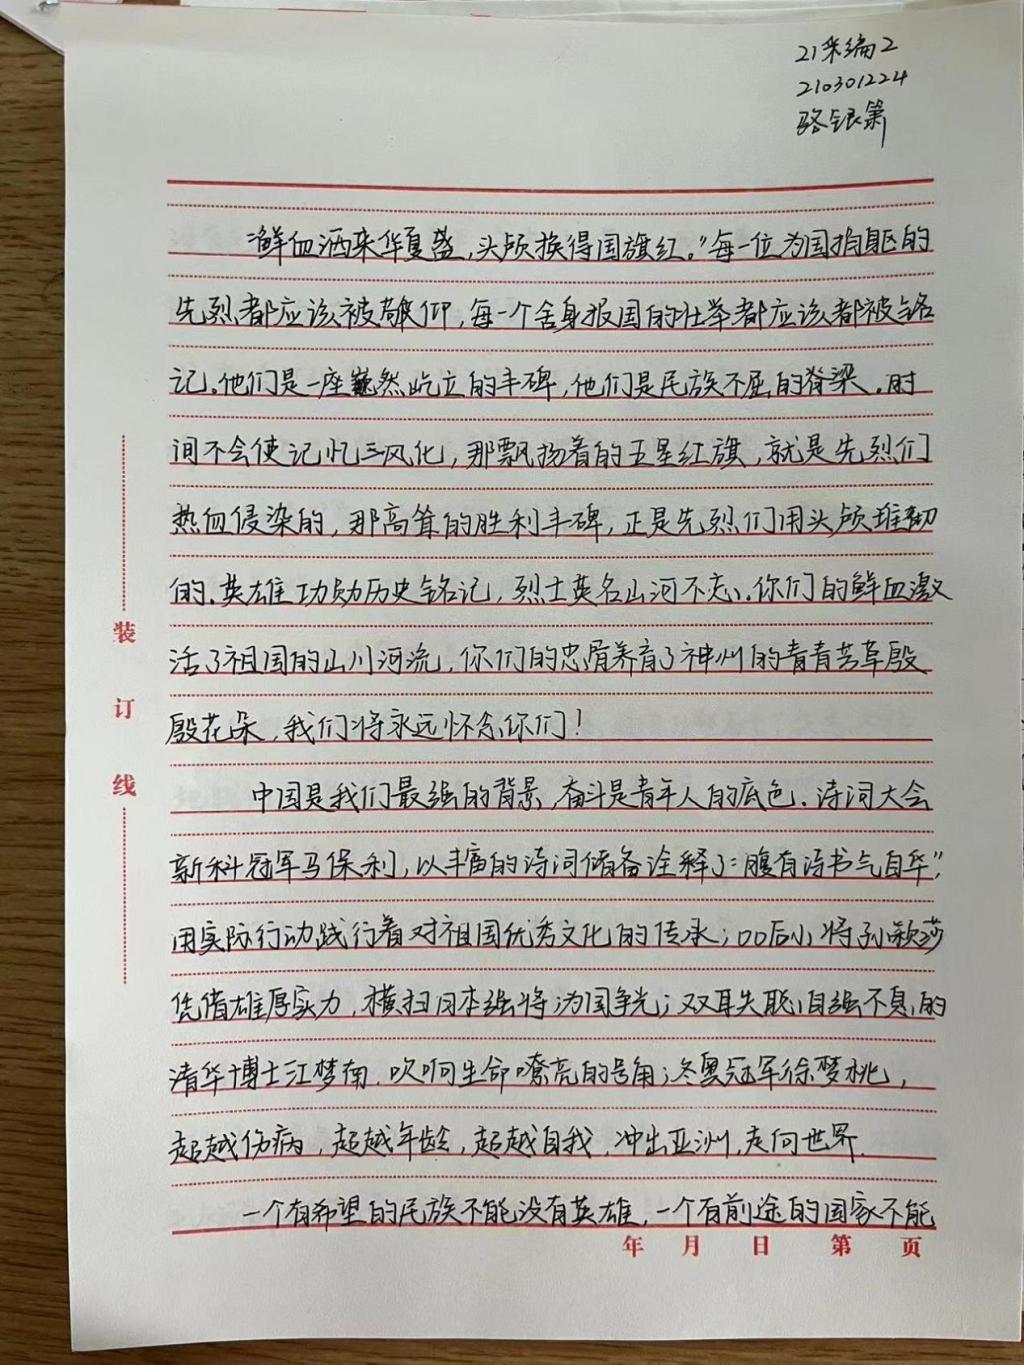 21采编2
210301224
骆银箫
“鲜血洒来华夏盛,头颅换得国旗红。”每一位为国捐躯的
先烈都应该被敬仰,每一个舍身报国的壮举都应该都被铭
记。他们是一座巍然屹立的丰碑,他们是民族不屈的脊梁。时
间不会使记忆三风化,那飘扬着的五星红旗,就是先烈们
热血侵染的,那高耸的胜利丰碑,正是先烈们用头颅堆砌
的。英雄功勋历史铭记,烈士英名山河不忘。你们的鲜血激
活了祖国的山川河流,你们的忠眉养育了神州的青青芳草殷
殷花朵,我们将永远怀念你们!
中国是我们最强的背景,奋斗是青年人的底色。诗词大会
新科冠军马保利,以丰富的诗词储备诠释了:“腹有诗书气自华”,
用实际行动践行着对祖国优秀文化的传承;00后小将孙颖莎
凭借雄厚实力,横扫日本强将,为国争光;双耳失聪,自强不息的
清华博士江梦南,吹响生命嘹亮的号角;冬奥冠军徐梦桃,
超越伤病,超越年龄,超越自我,冲出亚洲,走向世界。
一个有希望的民族不能没有英雄,一个有前途的国家不能
装
订
线
年 月 日 第 页